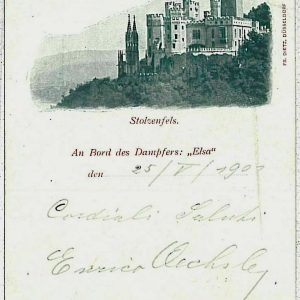 FR. DIETZ, DÜSSELDORF
Stolzenfels.
An Bord des Dampfers: „Elsa"
den 25/V/190
Cordiali Saluti
Enrico